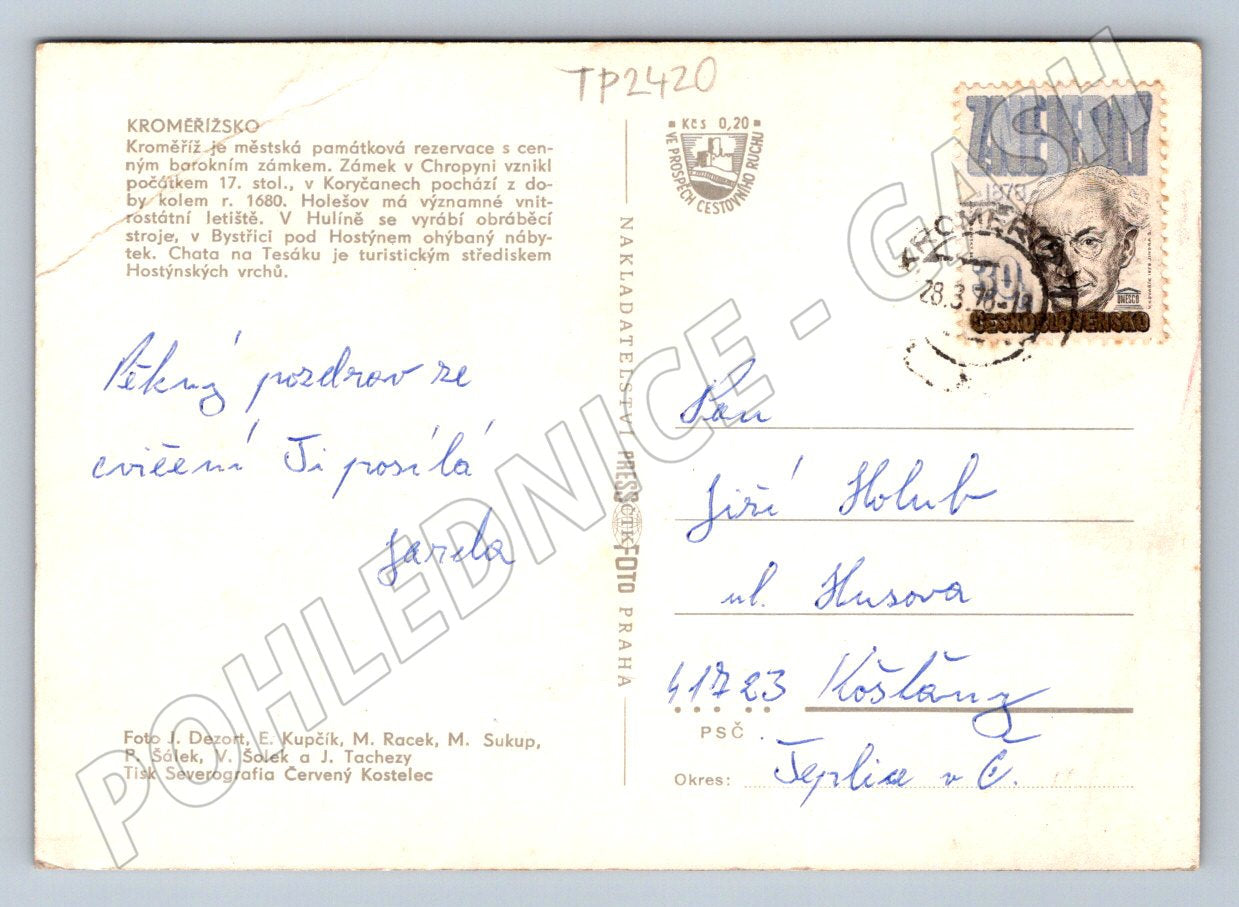 TP2420
KROMĚŘÍŽSKO
Kroměříž je městská památková rezervace s cen-
ným barokním zámkem. Zámek v Chropyni vznikl
počátkem 17. stol., v Koryčanech pochází z do-
by kolem r. 1680. Holešov má významné vnit-
rostátní letiště. V Hulíně se vyrábí obráběcí
stroje, v Bystřici pod Hostýnem ohýbaný náby-
tek. Chata na Tesáku je turistickým střediskem
Hostýnských vrchů.
Pěkný pozdrav ze
cvičení Ti posílá
Jarda
Foto J. Dezort, E. Kupčík, M. Racek, M. Sukup,
P. Šálek, V. Šolek a J. Tachezy
Tisk Severografia Červený Kostelec
NAKLADATELSTVÍ PRESSFOTO PRAHA
ČTK
Kčs 0,20
VE PROSPĚCH CESTOVNÍHO RUCHU
Z. NEJEDLÝ
1878
30h
UNESCO
ČESKOSLOVENSKO
28.3.78-18
Pan
Jiří Holub
ul. Husova
41723 Košťany
PSČ
Okres: Teplice v Č.
POHLEDNICE - GASH